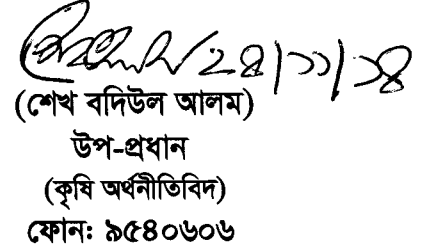 ২৪/১১/১৪
(শেখ বদিউল আলম)
উপ-প্রধান
(কৃষি অর্থনীতিবিদ)
ফোন: ৯৫৪০৬০৬